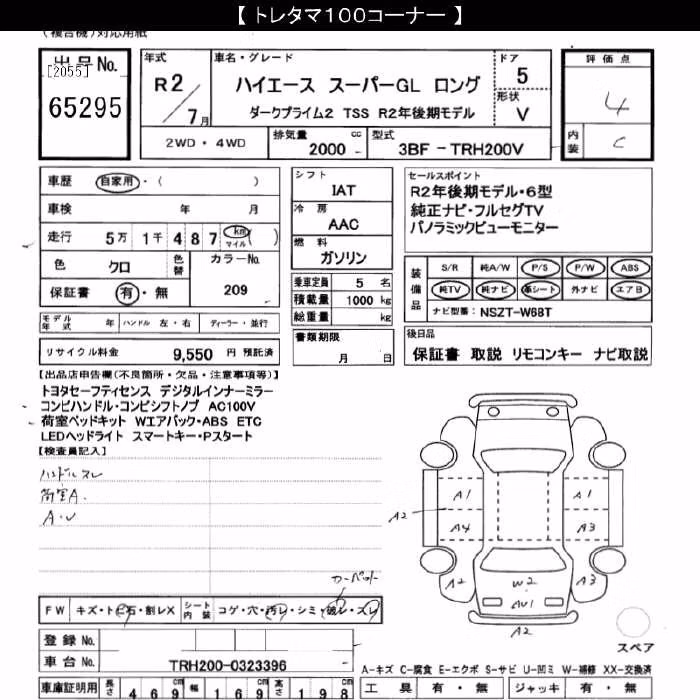 【 トレタマ１００コーナー 】
(複合機)対応用紙
出 品 No.
[2055]
65295
年式
R2/7月
車名・グレード
ハイエース スーパーGL ロング
ダークプライム2 TSS R2年後期モデル
ドア
5
形状
V
評 価 点
4
内装
C
2WD ・ 4WD
排気量
2000 - cc
型式
3BF - TRH200V
車歴 自家用・( )
車検 年 月
走行 5万 1千 4 8 7 km マイル ( )
色 クロ 色替 カラーNo.
保証書 有・無 209
シフト
IAT
冷 房
AAC
燃 料
ガソリン
乗車定員 5 名
積載量 1000 kg
総重量 kg
書類期限
月 日
セールスポイント
R2年後期モデル・6型
純正ナビ・フルセグTV
パノラミックビューモニター
装備品
S/R 純A/W P/S P/W ABS
純TV 純ナビ 革シート 外ナビ エアB
ナビ型番: NSZT-W68T
モデル年式 年 ハンドル 左・右 ディーラー・並行
リサイクル料金 9,550 円 預託済
後日品
保証書 取説 リモコンキー ナビ取説
【出品店申告欄(不良箇所・欠品・注意事項等)】
トヨタセーフティセンス デジタルインナーミラー
コンビハンドル・コンビシフトノブ AC100V
荷室ベッドキット Wエアバック・ABS ETC
LEDヘッドライト スマートキー・Pスタート
【検査員記入】
ハンドルスレ
荷室A.
A・U
カーペット
A1 A1
A2
A4 A3
A2 A3
W2
AU1
A2
スペア
FW キズ・トビ石・割レX シート内装 コゲ・穴・汚レ・シミ・破レ・スレ
登録 No.
車台 No. TRH200-0323396 -
A-キズ C-腐食 E-エクボ S-サビ U-凹ミ W-補修 XX-交換済
車庫証明用 長さ 4 6 9 cm 幅 1 6 9 cm 高さ 1 9 8 cm
工 具 有 ・ 無 ジャッキ 有 ・ 無